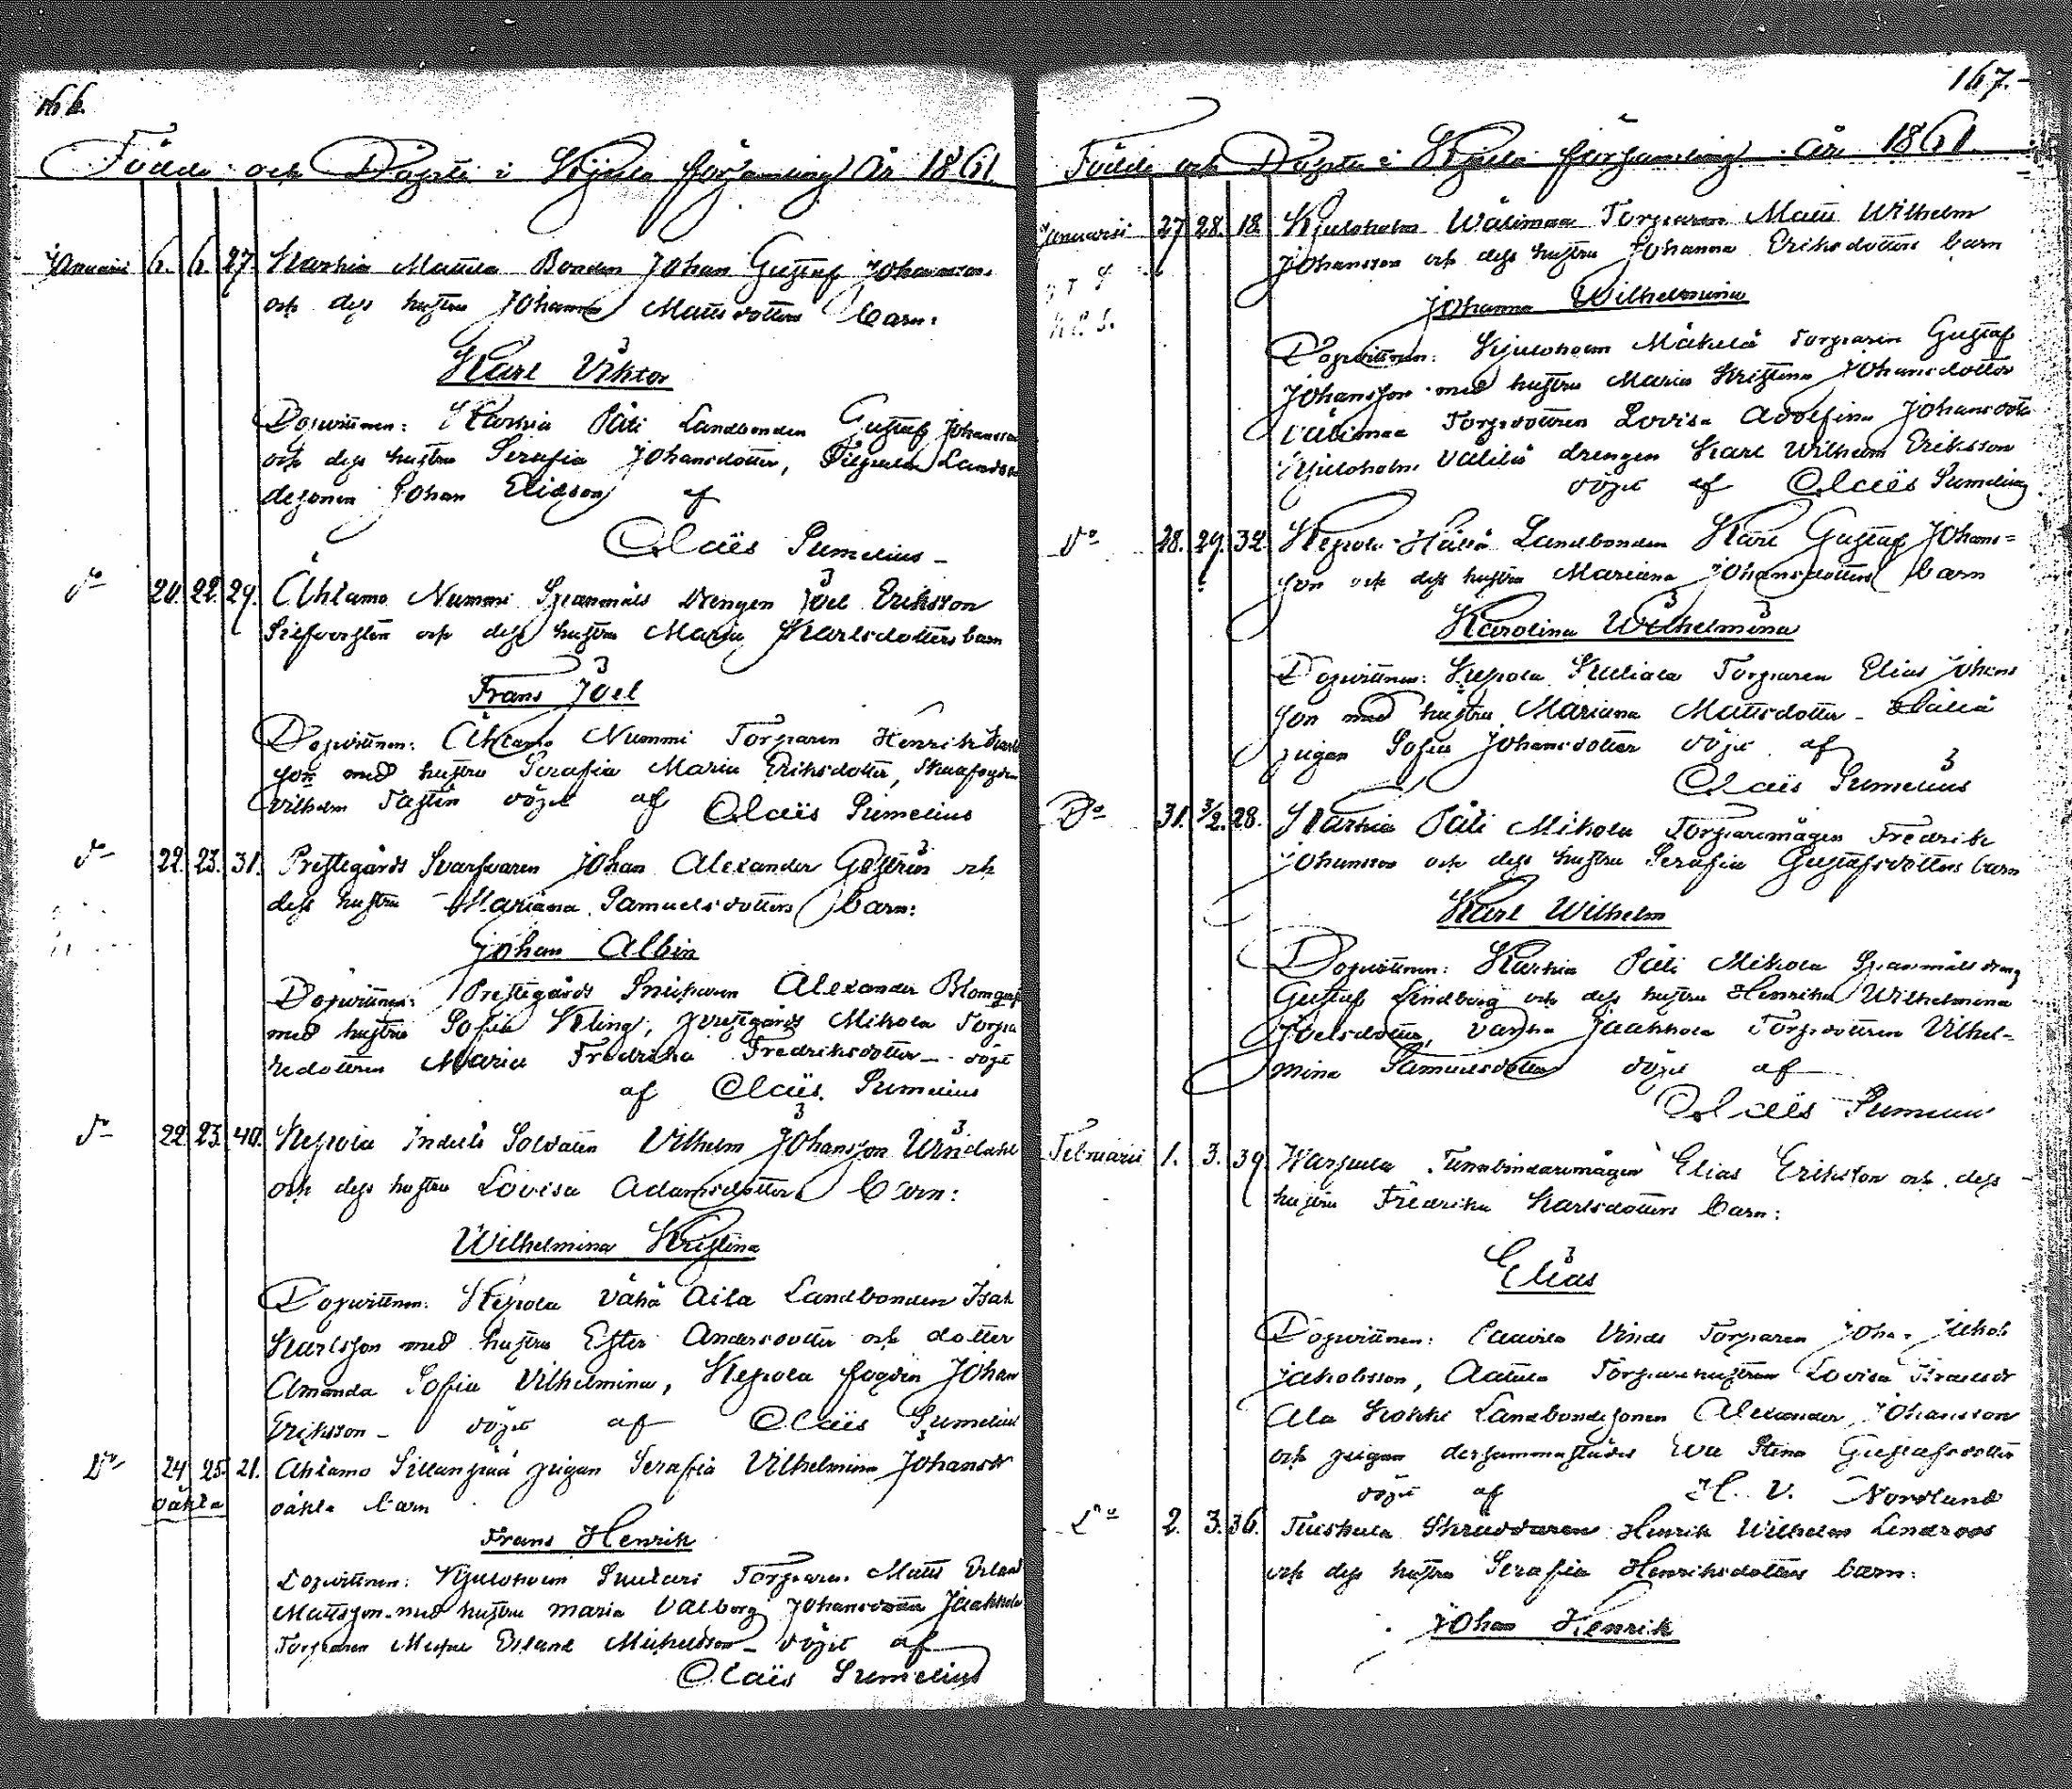 166.
Födde och Döpte i Kjulo församling År 1861.
Januarii 6. 6. 27. Karhia Mattila Bonden Johan Gustaf Johansson
och dess hustru Johanna Mattsdotters barn:
Karl Viktor
Dopvittnen: Karhia Päti Landbonden Gustaf Johansson
och dess hustru Serafia Johansdotter, Landbon
desonen Johan Elidson af
Claës Sumelius
do 20. 22. 29. Ählamo Nummi Spanmåls Drengen Joel Eriksson
och dess hustru Maria Karlsdotters barn
Frans Joel
Dopvittnen: Ählamo Nummi Torparen Henrik Karls
son med hustru Serafia Maria Eriksdotter,
Vilhelm Tastin döpt af Claës Sumelius
do 22. 23. 31. Prestegårds Svarfvaren Johan Alexander och
dess hustru Mariana Samuelsdotters barn:
Johan Albin
Dopvittnen: Prestegårds Snickaren Alexander Blomqvist
med hustru Sofia, prestegårds Mikola Torpa
redottren Maria Fredrika Fredriksdotter - döpt
af Claës Sumelius
do 22. 23. 40. Kepola Indeli Soldaten Vilhelm Johansson Windahl
och dess hustru Lovisa Adamsdotters barn:
Wilhelmina Kristina
Dopvittnen: Kepola Vähä Aila Landbonden Isak
Karlsson med hustru Ester Andersdotter och dotter
Amanda Sofia Vilhelmina, Kepola fogden Johan
Eriksson - döpt af Claës Sumelius
Do 24 25. 21. Ahlamo Sillanpää pigan Serafia Vilhelmina Johansdr
oäkta oäkta barn
Frans Henrik
Dopvittnen: Kjuloholm Suutari Torparen Matts Erland
Mattsson med hustru Maria Valborg Johansdotter Jaakkola
Torparen Erland Michelsson - döpt af
Claës Sumelius
167.
Födde och Döpte i Kjulo församling År 1861.
Januarii 27 28. 18. Kjuloholm Wälimaa Torparen Matts Wilhelm
Johansson och dess hustru Johanna Eriksdotters barn
Johanna Wilhelmina
Dopvittnen: Kjuloholm Mäkelä Torparen Gustaf
Johansson med hustru Maria Kristina Johansdotter
Välimaa Torpdottren Lovisa Adolfina Johansdotter
Kjuloholm drengen Karl Wilhelm Eriksson
döpt af Claës Sumelius
Do 28. 29. 32. Kepola Hiiliä Landbonden Karl Gustaf Johans=
son och dess hustru Mariana Johansdotters barn
Karolina Wilhelmina
Dopvittnen: Kepola Torparen Elias Johans
son med hustru Mariana Mattsdotter -
pigan Sofia Johansdotter döpt af
Claës Sumelius
Do 31. 3/2. 28. Karhia Päti Mikola Torparemågen Fredrik
Johansson och dess hustru Serafia Gustafsdotters barn
Karl Wilhelm
Dopvittnen: Karhia Päti Mikola Spanmåls dreng
Gustaf Lindberg och dess hustru Henrika Wilhelmina
Joelsdotter, Vanha Jaakkola Torpdottren Vilhel-
mina Samuelsdotter döpt af
Claës Sumelius
Februarii 1. 3. 39. Tunnbindaremågen Elias Eriksson och dess
hustru Fredrika Karlsdotters barn:
Elias
Dopvittnen: Torparen Johan Jakob
Jakobsson, Torparehustrun Lovisa
Ala Kokki Landbondesonen Alexander Johansson
och pigan dersammastädes Eva Stina Gustafsdotter
döpt af H. V. Nordlund
Do 2. 3. 36. Tuiskula Skräddaren Henrik Wilhelm Lindroos
och dess hustru Serafia Henriksdotters barn:
Johan Henrik